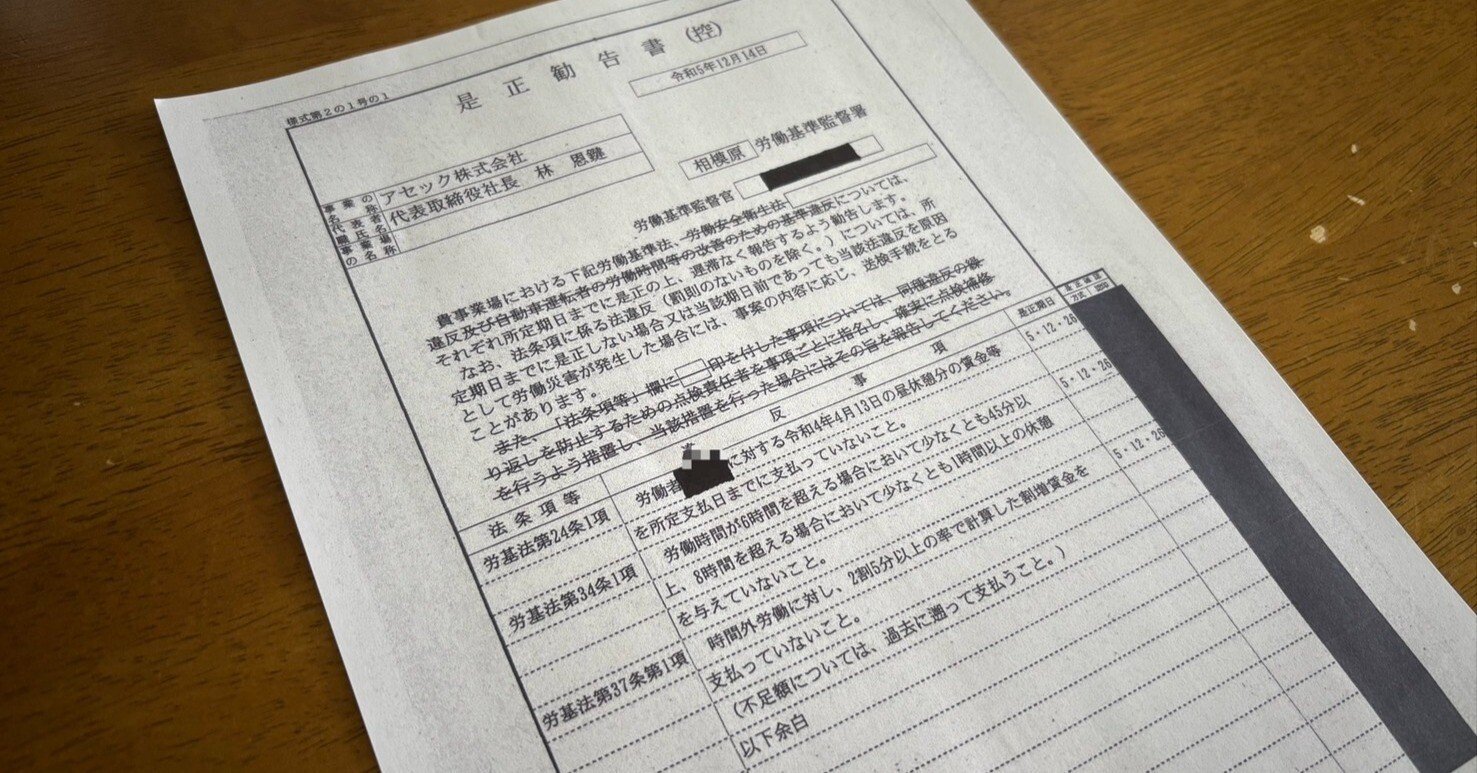 様式第2の1号の1
是正勧告書(控)
令和5年12月14日
事業の名称
アセック株式会社
代表者職氏名
代表取締役社長 林 恩鍵
事業場の名称
相模原 労働基準監督署
労働基準監督官
貴事業場における下記労働基準法、労働安全衛生法
違反及び自動車運転者の労働時間等の改善のための基準違反については、
それぞれ所定期日までに是正の上、遅滞なく報告するよう勧告します。
なお、法条項に係る法違反(罰則のないものを除く。)については、所
定期日までに是正しない場合又は当該期日前であっても当該法違反を原因
として労働災害が発生した場合には、事案の内容に応じ、送検手続をとる
ことがあります。
また、「法条項等」欄に 印を付した事項については、同種違反の繰
り返しを防止するための点検責任者を事項ごとに指名し、確実に点検補修
を行うよう措置し、当該措置を行った場合にはその旨を報告してください。
法条項等
反 事 項
是正期日
是正確認
労基法第24条1項
労働者 に対する令和4年4月13日の昼休憩分の賃金等
を所定支払日までに支払っていないこと。
5・12・26
労基法第34条1項
労働時間が6時間を超える場合において少なくとも45分以
上、8時間を超える場合において少なくとも1時間以上の休憩
を与えていないこと。
5・12・26
労基法第37条第1項
時間外労働に対し、2割5分以上の率で計算した割増賃金を
支払っていないこと。
5・12・26
(不足額については、過去に遡って支払うこと。)
以下余白